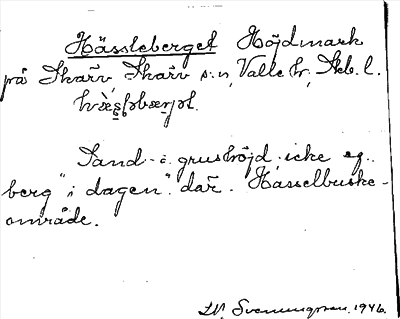 Hässleberget Höjdmark
på Skärv, Skärv s:n, Valle hr, Skb. l.
Sand- o. grushöjd, icke eg.
berg "i dagen" där. Hasselbuske-
område.
Sven Svenungsson. 1946.